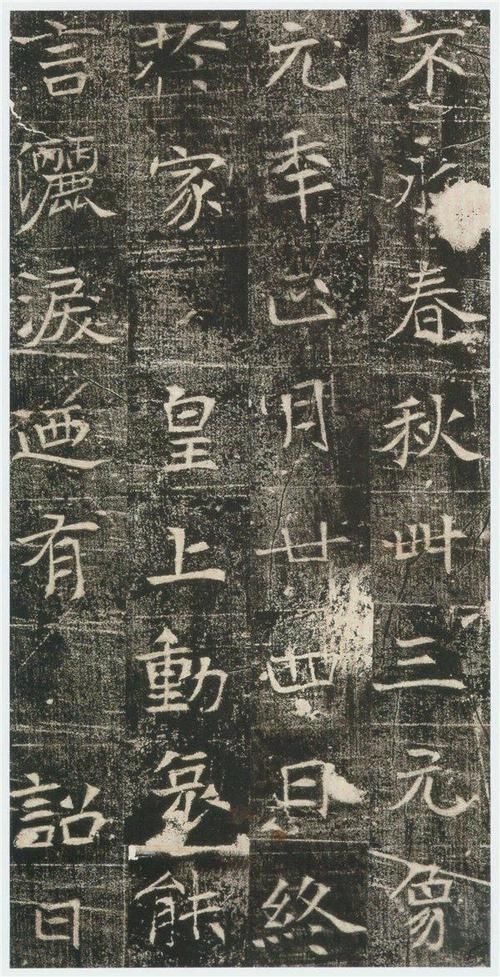 不永春秋卌三元象
元年正月廿四日終
於家皇上動哀能
言灑淚迺有詔曰